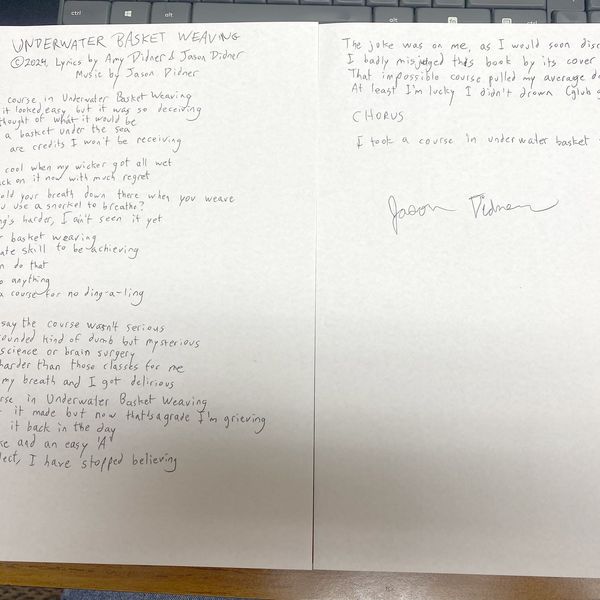 UNDERWATER BASKET WEAVING
©2024, Lyrics by Amy Didner & Jason Didner
Music by Jason Didner
course in Underwater Basket Weaving
it looked easy but it was so deceiving
thought of what it would be
a basket under the sea
are credits I won't be receiving
cool when my wicker got all wet
on it now with much regret
your breath down there when you weave
use a snorkel to breathe?
harder, I ain't seen it yet
basket weaving
skill to be achieving
do that
anything
a course for no ding-a-ling
say the course wasn't serious
kind of dumb but mysterious
science or brain surgery
harder than those classes for me
my breath and I got delirious
in Underwater Basket Weaving
it made but now that's a grade I'm grieving
it back in the day
and an easy 'A'
I have stopped believing
The joke was on me, as I would soon
I badly misjudged this book by its cover
That impossible course pulled my average
At least I'm lucky I didn't drown (glub
CHORUS
I took a course in underwater basket
Jason Didner
ctrl
alt
alt
fn
ctrl